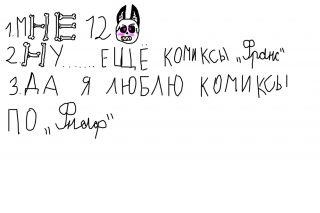 1.МНЕ 12
2.НУ.......ЕЩЁ КОМИКСЫ „Франс"
3.ДА Я ЛЮБЛЮ КОМИКСЫ
ПО